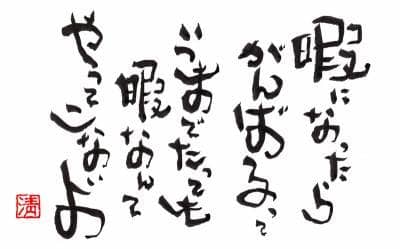 暇になったら
がんばるって
いつまでたっても
暇なんて
やってこないよ